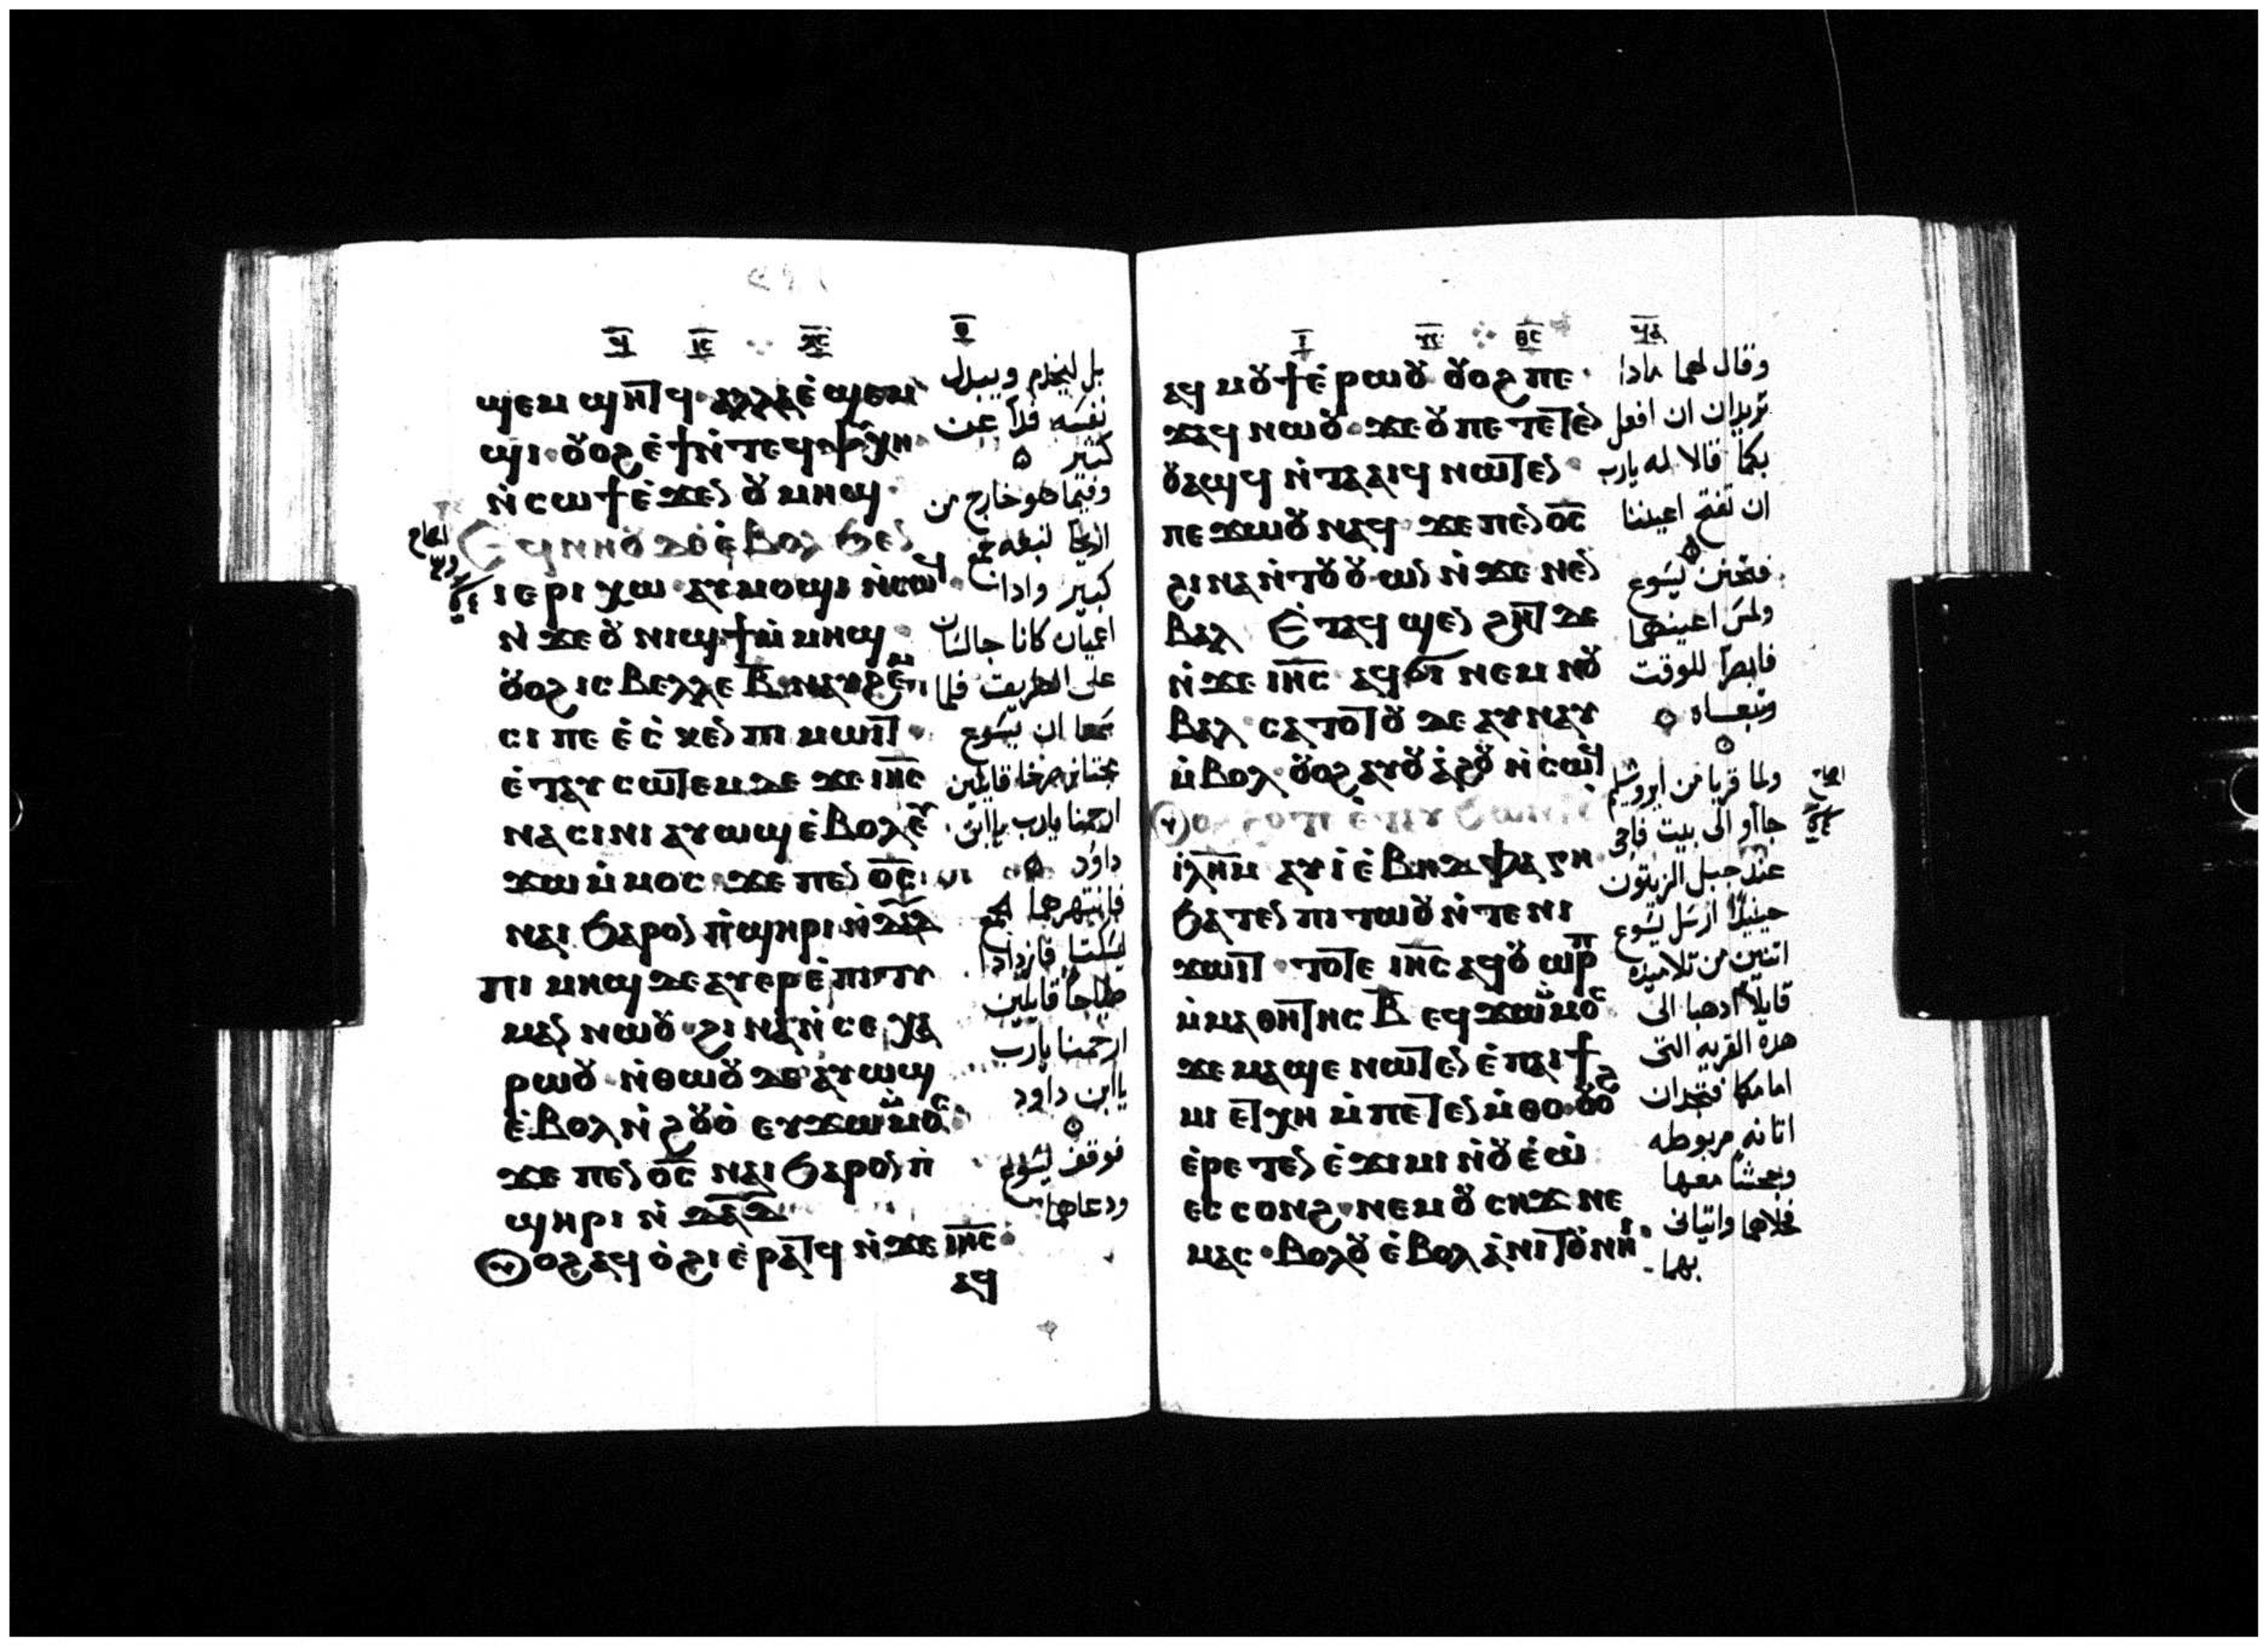 ϣⲉⲙϣⲏⲧϥ· ⲁⲗⲗⲁ ⲉ̇ϣⲉⲙ
ϣⲓ· ⲟⲩⲟϩ ⲉ̇ϯ ⲛ̇ⲧⲉϥⲯⲩⲭⲏ
ⲛ̇ⲥⲱϯ ⲉ̇ϫⲉⲛ ⲟⲩⲙⲏϣ·
Ⲉϥⲛⲏⲟⲩ ⲇⲉ ⲉ̇ⲃⲟⲗ ϧⲉⲛ
ⲓⲉⲣⲓⲭⲱ· ⲁⲩⲙⲟϣⲓ ⲛ̇ⲥⲱϥ
ⲛ̇ϫⲉ ⲟⲩⲛⲓϣϯ ⲙ̇ⲙⲏϣ·
ⲟⲩⲟϩ ⲓⲥ ⲃⲉⲗⲗⲉ ⲃ̅ ⲛⲁⲩϩⲉⲙ
ⲥⲓ ⲡⲉ ⲉ̇ⲥ̇ⲕⲉⲛ ⲡⲓⲙⲱⲓⲧ·
ⲉ̇ⲧⲁⲩⲥⲱⲧⲉⲙ ⲇⲉ ϫⲉ ⲓⲏ̅ⲥ̅
ⲛⲁⲥⲓⲛⲓ ⲁⲩⲱϣ ⲉ̇ⲃⲟⲗ ⲉⲩ
ϫⲱ ⲙ̇ⲙⲟⲥ· ϫⲉ ⲡⲉⲛⲟ̅ⲥ̅
ⲛⲁⲓ ϧⲁⲣⲟⲛ ⲡ̇ϣⲏⲣⲓ ⲛ̇ⲇ̅ⲁ̅ⲇ̅
ⲡⲓⲙⲏϣ ⲇⲉ ⲁⲩⲉⲣⲉ̇ⲡⲓⲧⲓ
ⲙⲁⲛ ⲛⲱⲟⲩ· ϩⲓⲛⲁ ⲛ̇ⲥⲉⲭⲁ
ⲣⲱⲟⲩ· ⲛ̇ⲑⲱⲟⲩ ⲇⲉ ⲁⲩⲱϣ
ⲉ̇ⲃⲟⲗ ⲛ̇ϩⲟⲩⲟ̇ ⲉⲩϫⲱ ⲙ̇ⲙⲟⲥ
ϫⲉ ⲡⲉⲛⲟ̅ⲥ̅ ⲛⲁⲓ ϧⲁⲣⲟⲛ ⲡ̇
ϣⲏⲣⲓ ⲛ̇ⲇ̅ⲁ̅ⲇ̅
Ⲟⲩⲟϩ ⲁϥⲟ̇ϩⲓ ⲉ̇ⲣⲁⲧϥ ⲛ̇ϫⲉ ⲓⲏ̅ⲥ̅·
ⲁϥ
بل ليخدم ويبذل
نفسه فدآ عن
كثير
وفيما هو خارج من
اريحا تبعه جمع
كبير واذا
اعميان كانا جالسان
على الطريق فلما
سمعا ان يسوع
مجتاز صرخا قايلين
ارحمنا يارب ياابن
داود
فانتهرهما الجمع
ليسكتا فازدادا
صياحا قايلين
ارحمنا يارب
ياابن داود
فوقف يسوع
ودعاهما
ⲁϥⲙⲟⲩϯ ⲉ̇ⲣⲱⲟⲩ ⲟⲩⲟϩ ⲡⲉ·
ϫⲁϥ ⲛⲱⲟⲩ· ϫⲉ ⲟⲩ ⲡⲉⲧⲉⲧⲉⲛ
ⲟⲩⲁϣϥ ⲛ̇ⲧⲁⲁⲓϥ ⲛⲱⲧⲉⲛ·
ⲡⲉϫⲱⲟⲩ ⲛⲁϥ ϫⲉ ⲡⲉⲛⲟ̅ⲥ̅
ϩⲓⲛⲁ ⲛ̇ⲧⲟⲩⲟⲩⲱⲛ ⲛ̇ϫⲉ ⲛⲉⲛ
ⲃⲁⲗ Ⲉ̇ⲧⲁϥϣⲉⲛϩⲏⲧ ⲇⲉ
ⲛ̇ϫⲉ ⲓⲏ̅ⲥ̅ ⲁϥϭⲓ ⲛⲉⲙ ⲛⲟⲩ
ⲃⲁⲗ· ⲥⲁⲧⲟⲧⲟⲩ ⲇⲉ ⲁⲩⲛⲁⲩ
ⲙ̇ⲃⲟⲗ· ⲟⲩⲟϩ ⲁⲩⲟⲩⲁ̇ϩⲟⲩ ⲛ̇ⲥⲱϥ
ⲓⲗ̅ⲏ̅ⲙ ⲁⲩⲓ̇ ⲉ̇ⲃⲏⲑⲫⲁⲅⲏ
ϧⲁⲧⲉⲛ ⲡⲓⲧⲱⲟⲩ ⲛ̇ⲧⲉ ⲛⲓ
ϫⲱⲓⲧ· ⲧⲟⲧⲉ ⲓⲏ̅ⲥ̅ ⲁϥⲟⲩⲱⲣⲡ
ⲙ̇ⲙⲁⲑⲏⲧⲏⲥ ⲃ̅ ⲉϥϫⲱ ⲙ̇ⲙⲟⲥ
ϫⲉ ⲙⲁϣⲉ ⲛⲱⲧⲉⲛ ⲉ̇ⲡⲁⲓϯ
ⲙⲓ ⲉⲧⲭⲏ ⲙ̇ⲡⲉⲧⲉⲛⲙ̇ⲑⲟ· ⲟⲩⲟϩ
ⲉ̇ⲣⲉⲧⲉⲛⲉ̇ϫⲓⲙⲓ ⲛ̇ⲟⲩⲉ̇ⲱ̇
ⲉⲥⲥⲟⲛϩ· ⲛⲉⲙ ⲟⲩⲥⲏϫ ⲛⲉ
ⲙⲁⲥ· ⲃⲟⲗⲟⲩ ⲉ̇ⲃⲟⲗ ⲁ̇ⲛⲓⲧⲟⲩ ⲛⲏⲓ·
وقال لهما ماذا
تريدان ان افعل
بكما قالا له يارب
ان تفتح اعيننا
فتحنن يسوع
ولمس اعينهما
فابصرا للوقت
وتبعاه
ولما قربا من ايروشليم
جاأو الى بيت فاجى
عند جبل الزيتون
حينيذ ارسل يسوع
اثنين من تلاميذه
قايلا اذهبا الى
هذه القريه التى
امامكما فتجدان
اتانه مربوطه
وجحشا معها
فحلاهما واتيانى
بهما